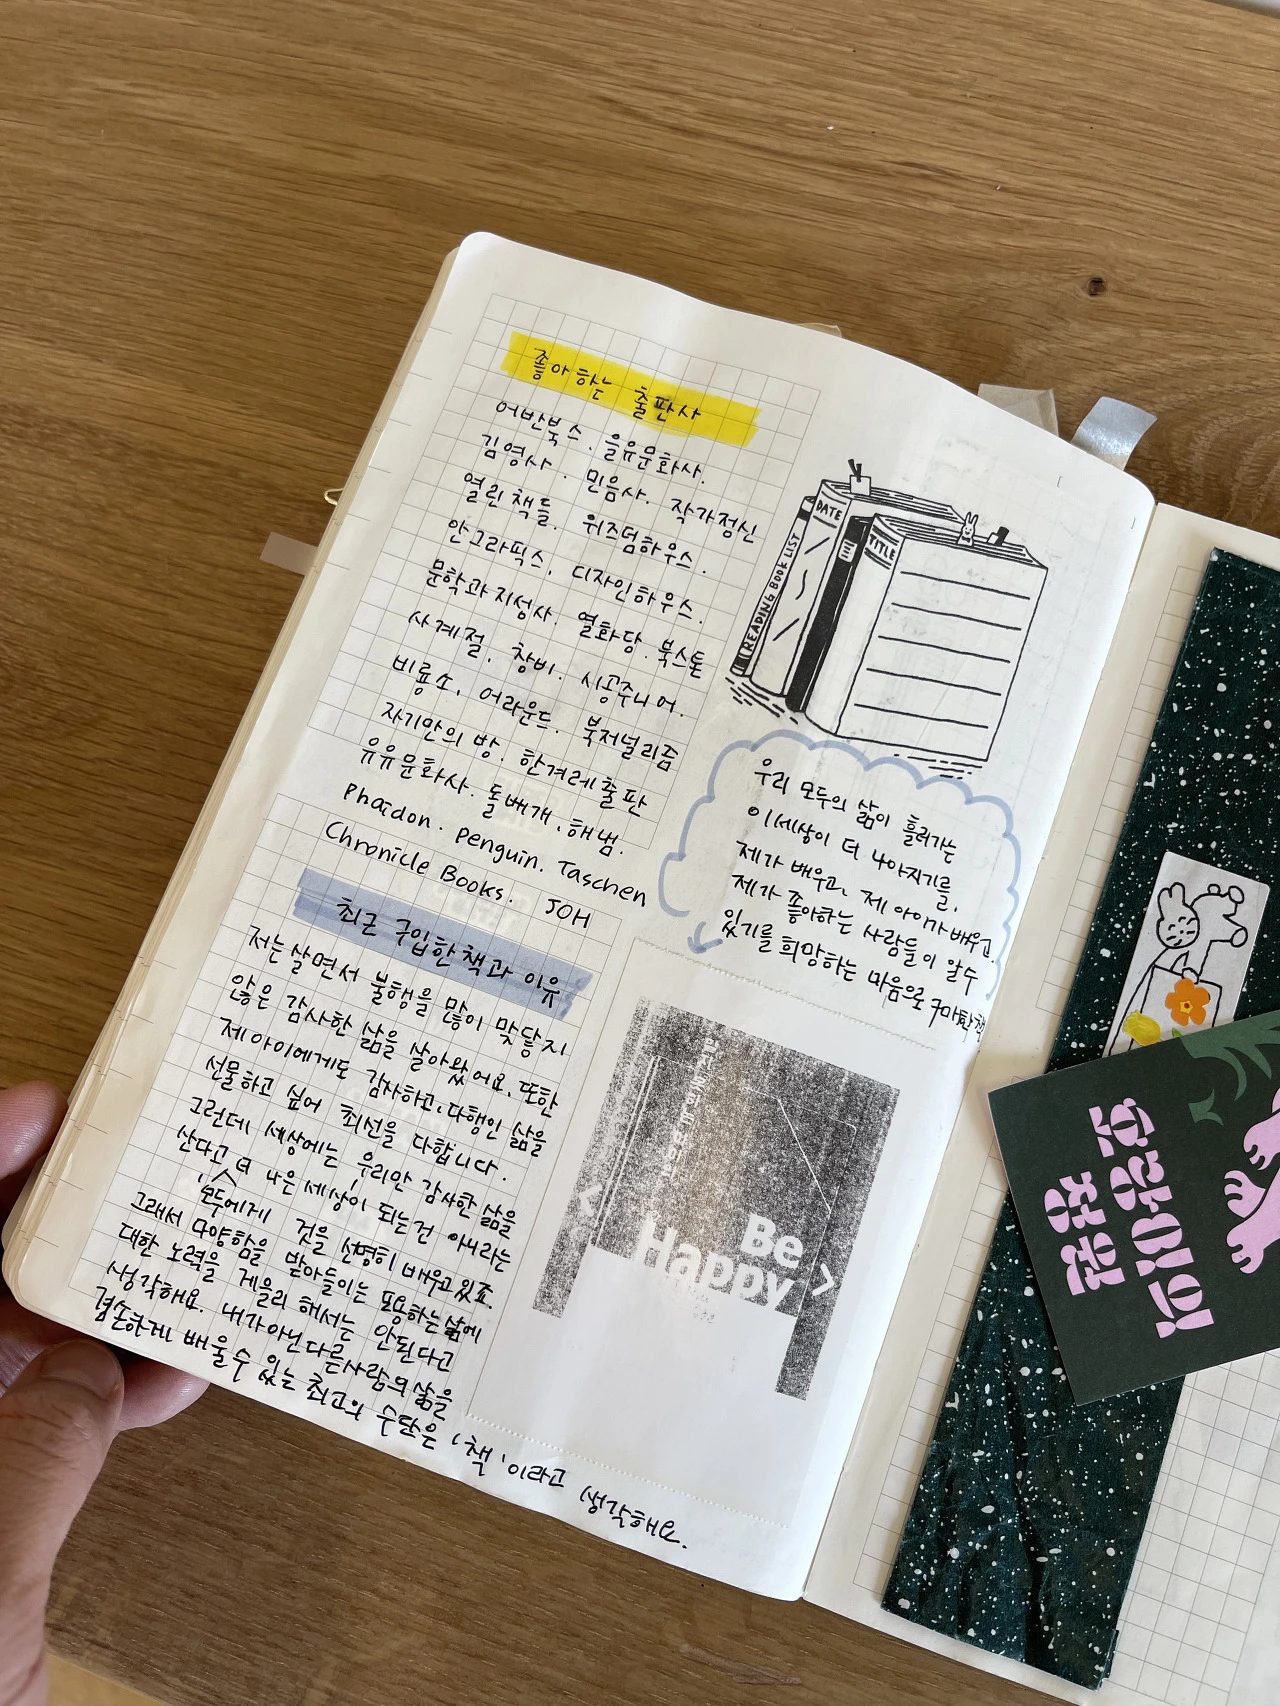 좋아하는 출판사
어반북스. 을유문화사.
김영사. 민음사. 작가정신
열린책들. 위즈덤하우스.
안그라픽스. 디자인하우스.
문학과지성사. 열화당. 북스톤
사계절. 창비. 시공주니어.
비룡소. 어라운드. 북저널리즘
자기만의 방. 한겨레출판
유유문화사. 돌베개. 해냄.
Phaidon. Penguin. Taschen
Chronicle Books. JOH
최근 구입한 책과 이유
저는 살면서 불행을 많이 맞닿지
않은 감사한 삶을 살아왔어요. 또한
제 아이에게도 감사하고, 다행인 삶을
선물하고 싶어 최선을 다합니다.
그런데 세상에는, 우리만 감사한 삶을
산다고 더 나은 세상이 되는건 아니라는
모두에게 것을 선명히 배우고 있죠.
그래서 다양함을 받아들이는 포용하는 삶에
대한 노력을 게을리 해서는 안된다고
생각해요. 내가 아닌 다른 사람의 삶을
겸손하게 배울 수 있는 최고의 수단은 '책'이라고 생각해요.
READING BOOK LIST
DATE
TITLE
우리 모두의 삶이 흘러가는
이 세상이 더 나아지기를,
제가 배우고, 제 아이가 배우고,
제가 좋아하는 사람들이 알 수
있기를 희망하는 마음으로 구매한 책
Be
Happy